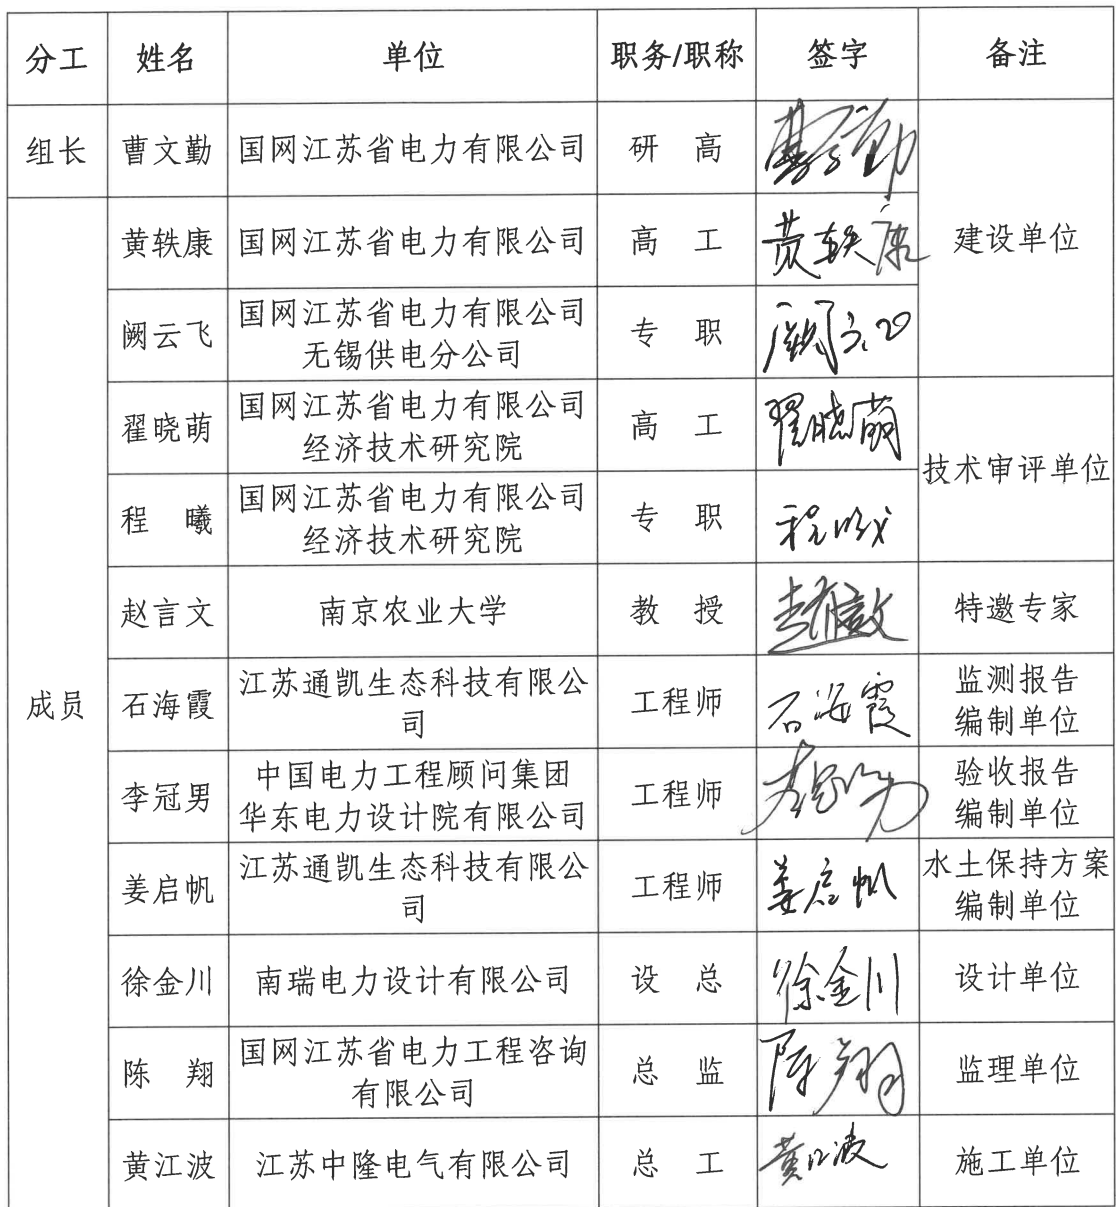 分工 姓名 单位 职务/职称 签字 备注
组长 曹文勤 国网江苏省电力有限公司 研 高 曹文勤
黄轶康 国网江苏省电力有限公司 高 工 黄轶康 建设单位
阙云飞 国网江苏省电力有限公司
无锡供电分公司 专 职 阙云飞
翟晓萌 国网江苏省电力有限公司
经济技术研究院 高 工 翟晓萌
技术审评单位
程 曦 国网江苏省电力有限公司
经济技术研究院 专 职 程曦
赵言文 南京农业大学 教 授 特邀专家
成员 石海霞 江苏通凯生态科技有限公
司 工程师 石海霞 监测报告
编制单位
李冠男 中国电力工程顾问集团
华东电力设计院有限公司 工程师 李冠男 验收报告
编制单位
姜启帆 江苏通凯生态科技有限公
司 工程师 姜启帆 水土保持方案
编制单位
徐金川 南瑞电力设计有限公司 设 总 徐金川 设计单位
陈 翔 国网江苏省电力工程咨询
有限公司 总 监 陈翔 监理单位
黄江波 江苏中隆电气有限公司 总 工 黄江波 施工单位